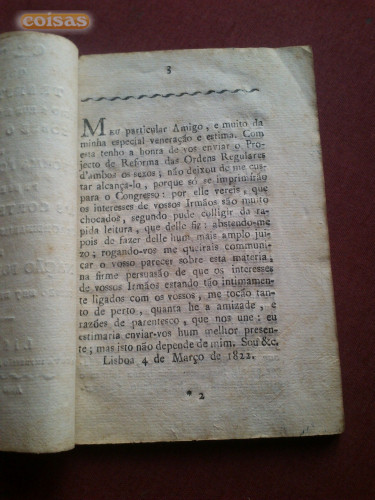 coisas
3
MEU particular Amigo, e muito da
minha especial veneração e estima. Com
esta tenho a honra de vos enviar o Pro-
jecto de Reforma das Ordens Regulares
d'ambos os sexos; não deixou de me cus-
tar alcança-lo, porque só se imprimírão
para o Congresso: por elle vereis, que
os interesses de vossos Irmãos são muito
chocados, segundo pude colligir da ra-
pida leitura, que delle fiz: abstendo-me
pois de fazer delle hum mais amplo jui-
zo; rogando-vos me queirais communi-
car o vosso parecer sobre esta materia,
na firme persuasão de que os interesses
de vossos Irmãos estando tão intimamen-
te ligados com os vossos, me tocão tan-
to de perto, quanta he a amizade, e
razões de parentesco, que nos une: eu
estimaria enviar-vos hum melhor presen-
te; mas isto não depende de mim. Sou &c.
Lisboa 4 de Março de 1822.
* 2